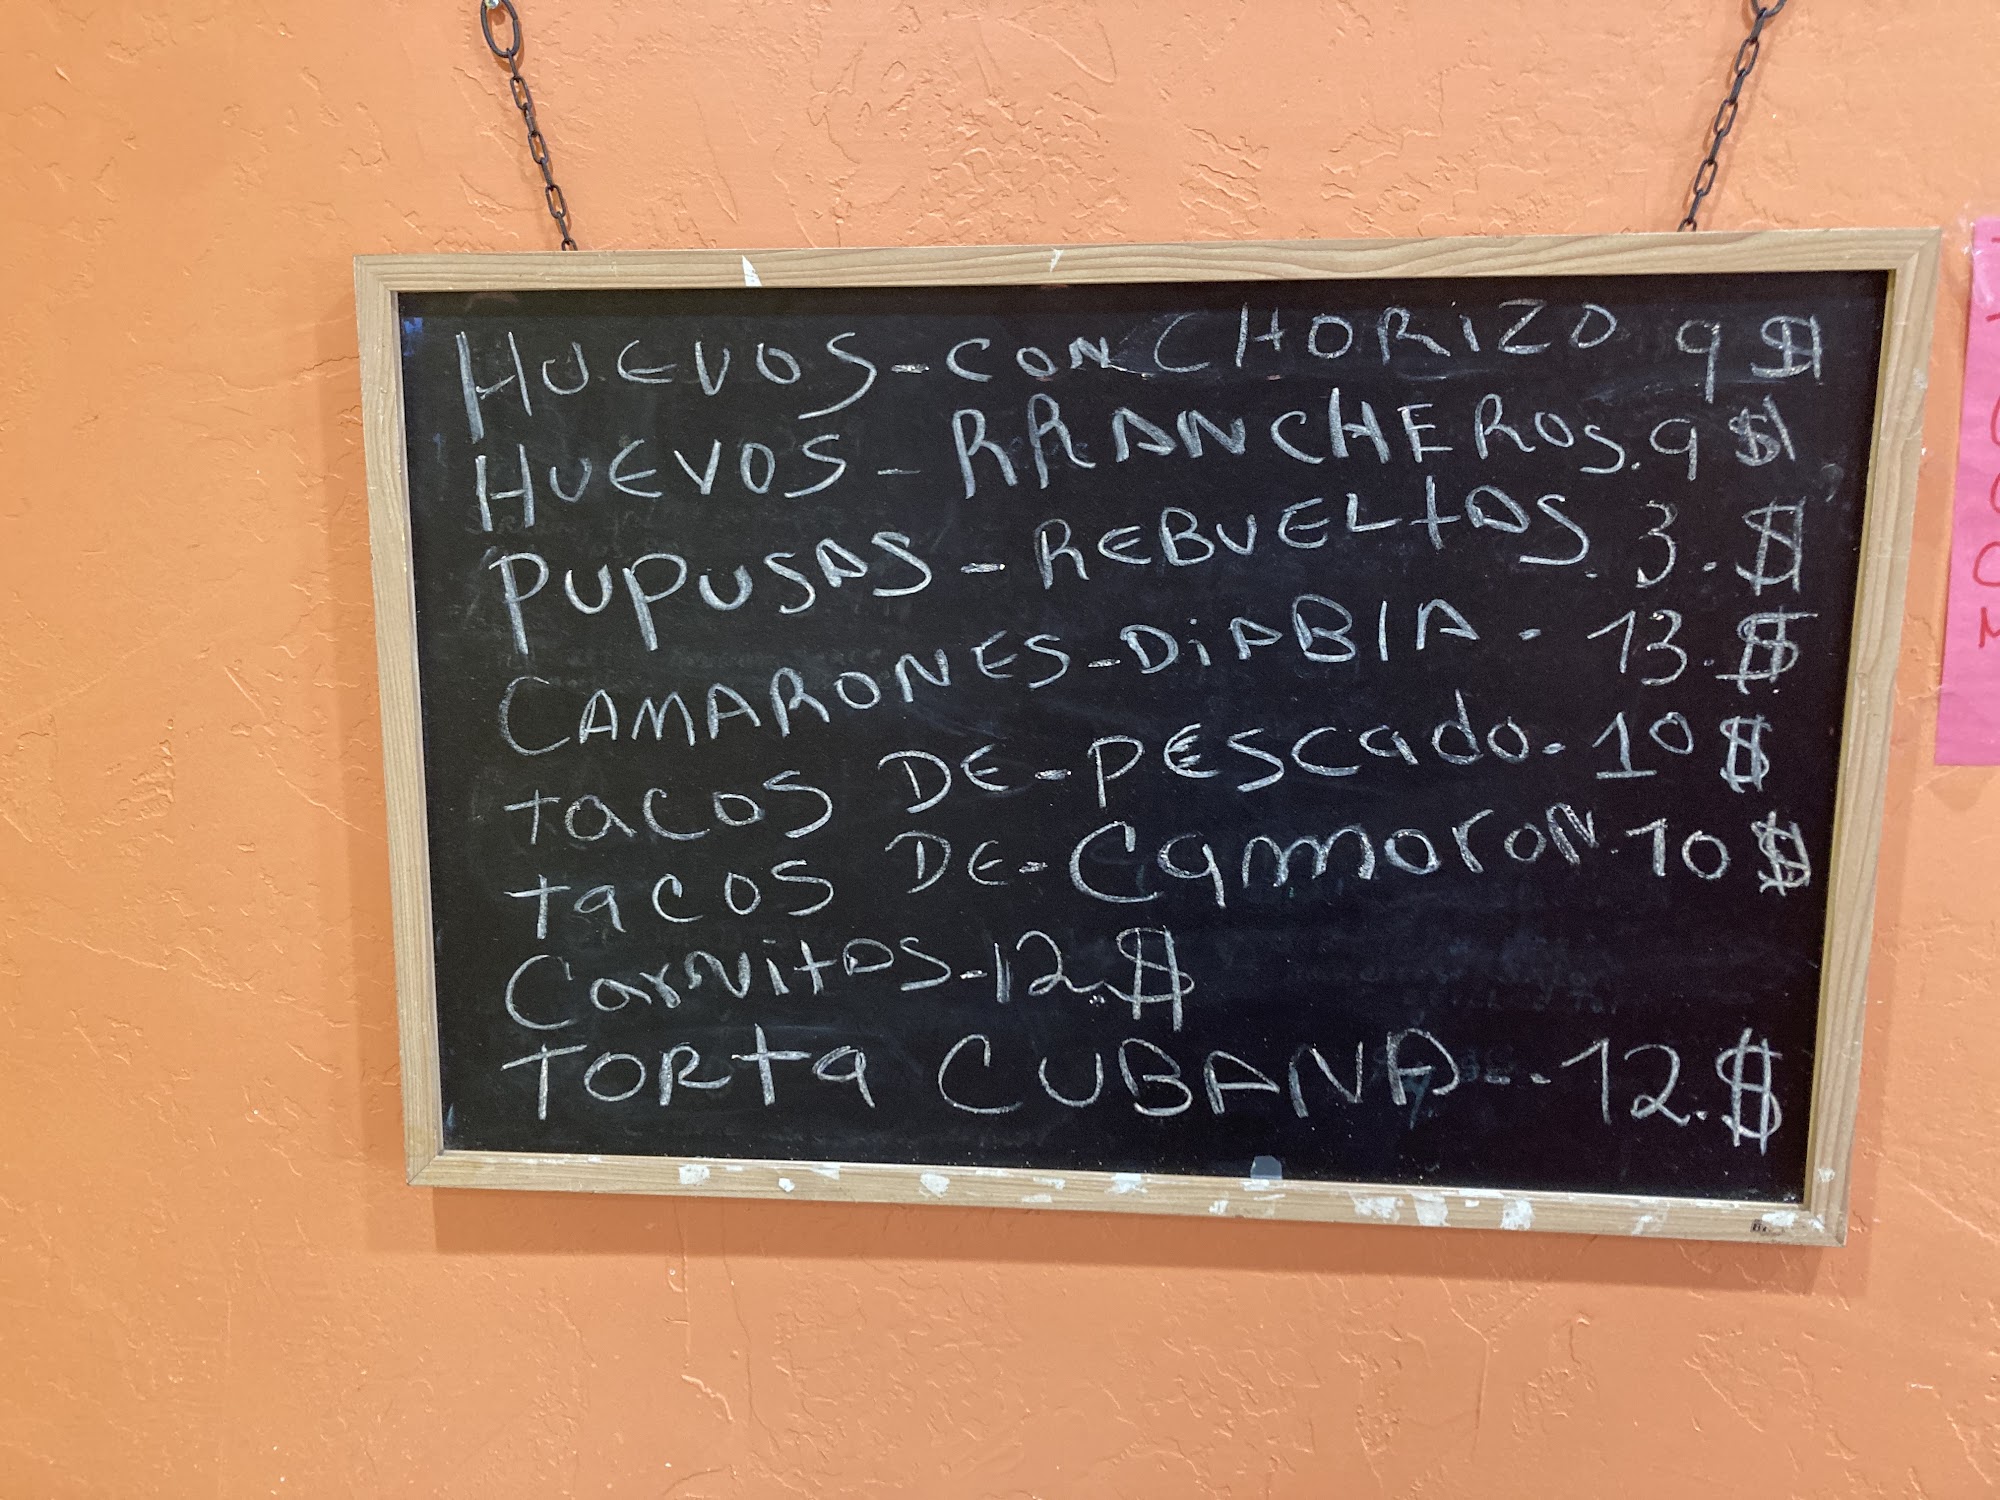 HUEVOS-CON CHORIZO 9 $
HUEVOS-RRANCHEROS.9 $
PUPUSAS-REBUELTAS.3.$
CAMARONES-DIABIA.13.$
TACOS DE-PESCADO.10 $
TACOS DE-CAMORON.10 $
CARNITAS-12.$
TORTA CUBANA-.12.$